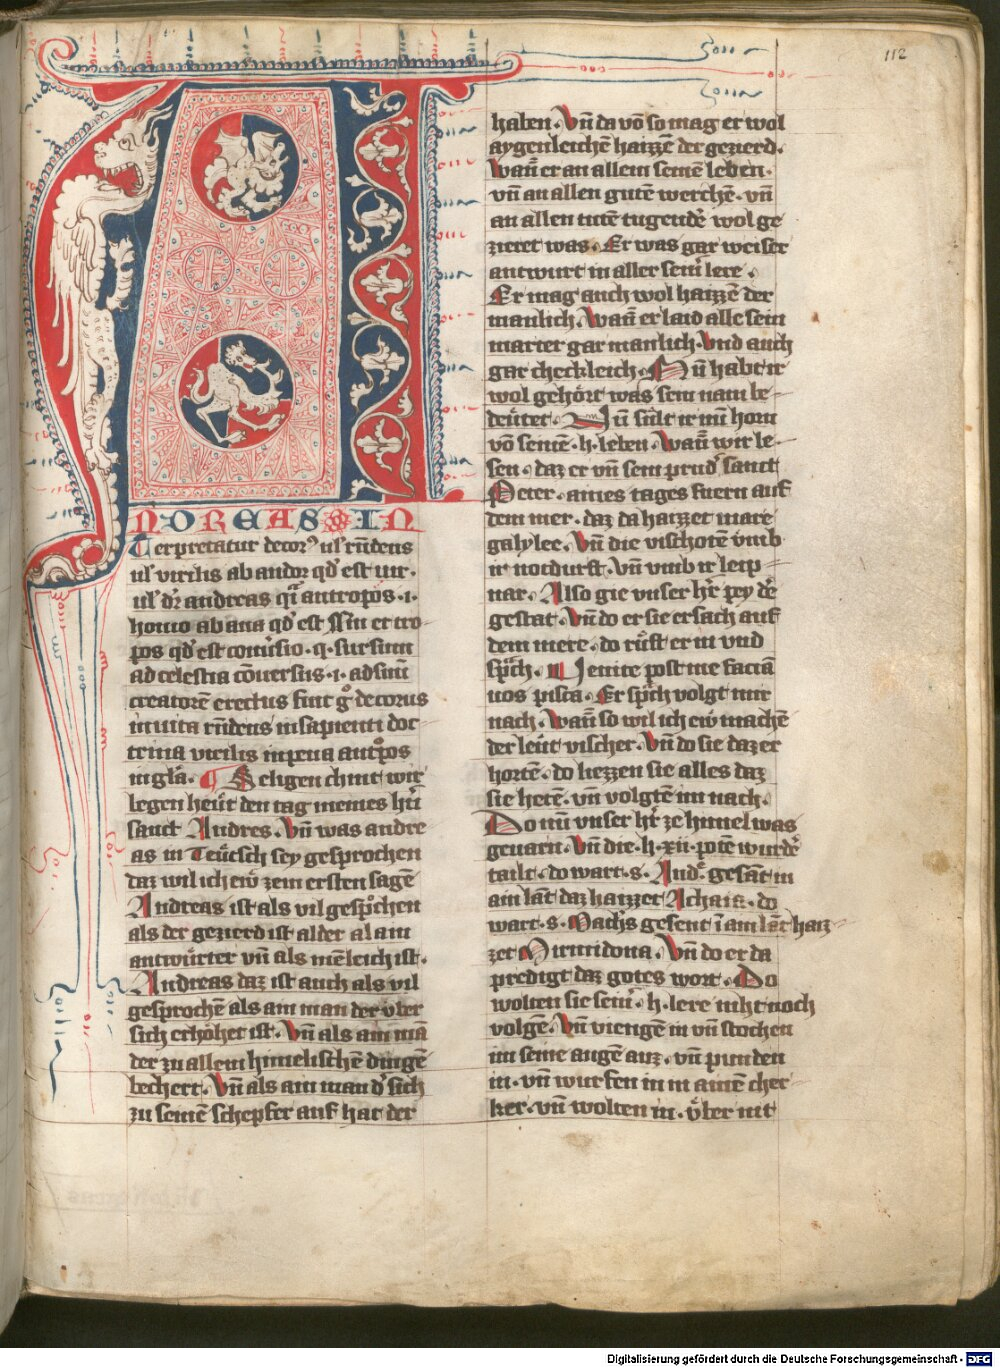 112
NDREAS IN
terpretatur decor᷒ ul᷒ rn̄dens
ul᷒ virilis ab andor qd᷒ est uir.
ul᷒ dr̄ andreas qi᷒ antropos .i.
homo ab ana qd᷒ est
pos qd᷒ est conu᷒sio .q. sursum
ad celestia cōuersus .i. ad suū
creatorē erectus fuit g᷒ decorus
in uita rn̄dens in sapienti doc
trina virilis in pena antr᷒opos
in gl̄a. Seligen chint wir
legen heu̇t den tag meines hr̄n
sanct Andres. Vn̄ was andre
as in Teu̇tsch sey gesprochen
daz wil ich ew zem ersten sagē
Andreas ist als vil gesp᷒chen
als der gezierd ist alder al ain
antwu̇rter vn̄ als mēleich ist.
Andreas daz ist auch als vil
gesprochē als am man der v̇ber
sich erhȯhet ist. Vn̄ als ain mā
der zu allem himelischē dingē
bechert. Vn̄ als ain man d᷒ sich
zu seinē schepfer auf hat der
haben. Vn̄ da vō so mag er wol
aygenleichē haizzē der gezierd.
Wan̄ er an allem seinē leben.
vn̄ an allen gutē werchē. vn̄
an allen tugend᷒ wol ge
zieret was. Er was gar weiser
antwurt in aller sein᷒ lere.
Er mag auch wol haizzē der
manlich. Wan̄ er laid alle sein
marter gar manlich. Vnd auch
gar checkleich. Nu̅ habt ir
wol gehȯrt was sein nam be
deu̇tet. Nu̅ su̇lt ir nu̅ horn
vō seinē .h. leben. Wan̄ wir le
sen. daz er vn̄ sein prud᷒ sanct
Peter. aines tages fuern auf
dem mer. daz da haizzet mare
galylee. Vn̄ die vischotē vmb
ir notdurft. Vn̄ vmb ir leip
nar. Also gie vnser hr̄e pey dē
gestat. Vn̄ do er sie ersach auf
dem mere. do ru̇ft er in vnd
sp᷒ch. Uenite post me faciā
uos pisca. Er sp᷒ch volgt mir
nach. Wan̄ so wil ich ew machē
der leu̇t vischer. Vn̄ do sie daz er
hortē. do liezzen sie alles daz
sie hetē. vn̄ volgtē im nach.
Do nu̅ vnser hr̄ ze himel was
geuarn. Vn̄ die .h. xii. potē wurdē
tailt. do wart .s. Andr᷒ gesāt in
ain lāt daz haizzet Achaia. do
wart .s. Mathe᷒s gesent ī ain lāt haiz
zet Mirmidona. Vn̄ do er da
predigt daz gotes wort. Do
wolten sie sein᷒ .h. lere niht noch
volgē. Vn̄ viengē in vn̄ stochen
im seine augē auz. vn̄ punden
in. vn̄ wurfen in in ainē cher
ker. vn̄ wolten in. v̇ber nit
Digitalisierung gefördert durch die Deutsche Forschungsgemeinschaft - DFG